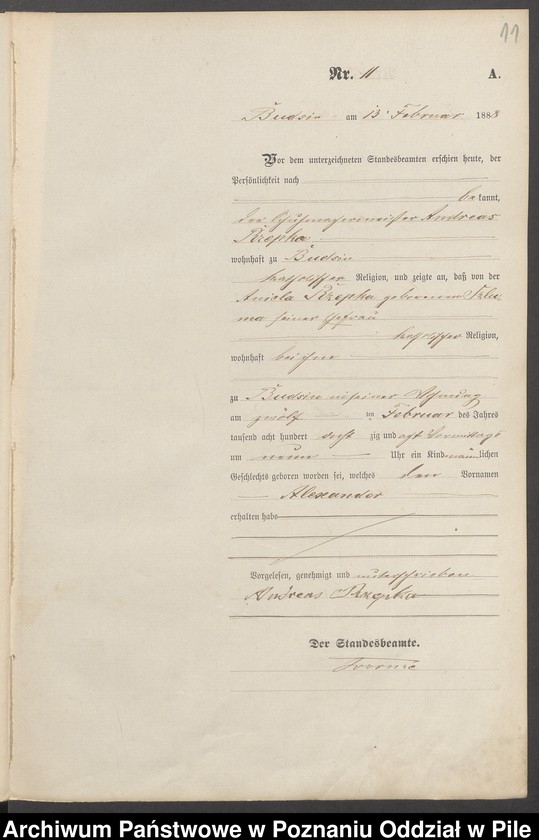 11
Nr. 11 A.
Budsin am 13. Februar 1888
Vor dem unterzeichneten Standesbeamten erschien heute, der
Persönlichkeit nach
bekannt,
der Schuhmachermeister Andreas
Rzepka
wohnhaft zu Budsin
katholischer Religion, und zeigte an, daß von der
Aniela Rzepka geborenen
seiner Ehefrau
katholischer Religion,
wohnhaft bei ihm
zu Budsin in seiner Wohnung
am zwölften Februar des Jahres
tausend acht hundert achtzig und acht Vormittags
um neun Uhr ein Kind männlichen
Geschlechts geboren worden sei, welches den Vornamen
Alexander
erhalten habe
Vorgelesen, genehmigt und unterschrieben
Andreas Rzepka
Der Standesbeamte.
Archiwum Państwowe w Poznaniu Oddział w Pile